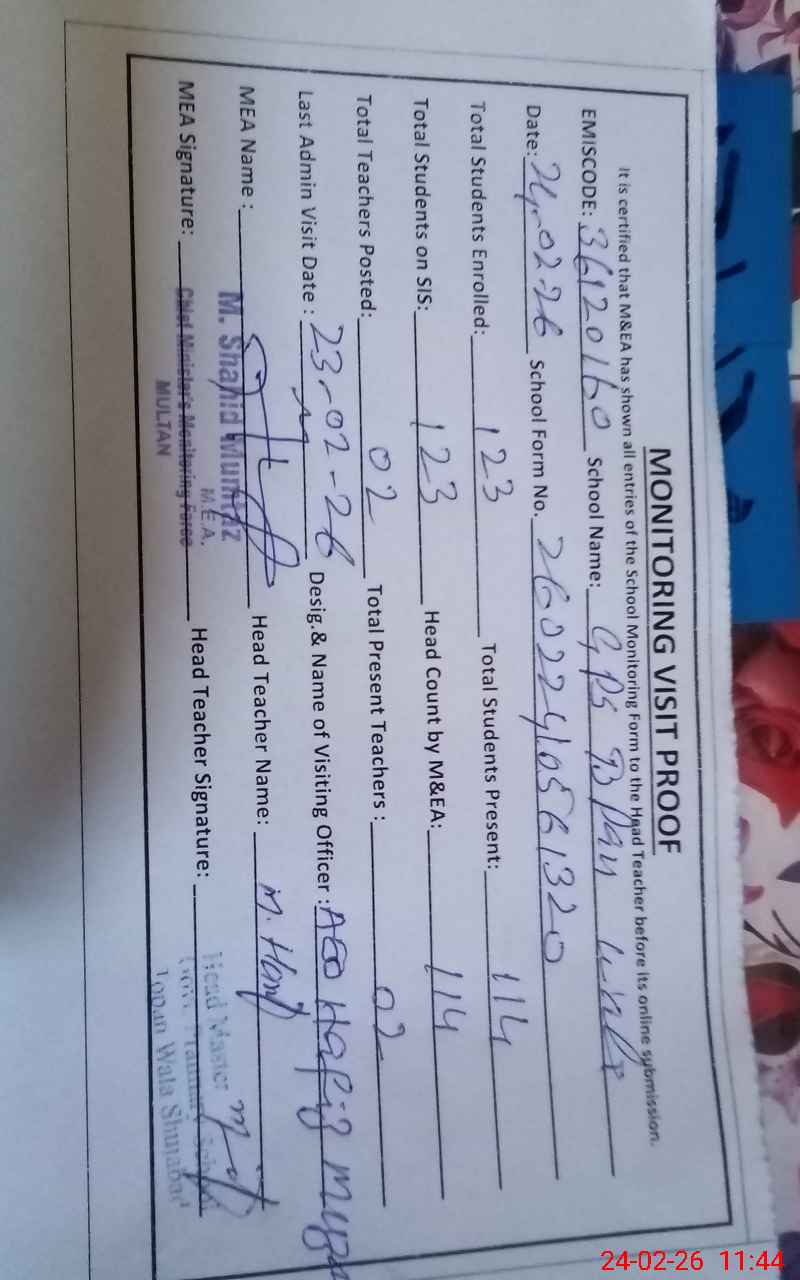 MONITORING VISIT PROOF
It is certified that M&EA has shown all entries of the School Monitoring Form to the Head Teacher before its online submission.
EMISCODE: 36120160 School Name: GPS
Date: 24-02-26 School Form No. 26022410561320
Total Students Enrolled: 123 Total Students Present: 114
Total Students on SIS: 123 Head Count by M&EA: 114
Total Teachers Posted: 02 Total Present Teachers : 02
Last Admin Visit Date : 23-02-26 Desig.& Name of Visiting Officer : AEO Hafiz
MEA Name : M. Shahid Mumtaz Head Teacher Name: M. Hanif
M.E.A.
MEA Signature: Chief Minister's Monitoring Force Head Teacher Signature: Head Master
MULTAN
24-02-26 11:44